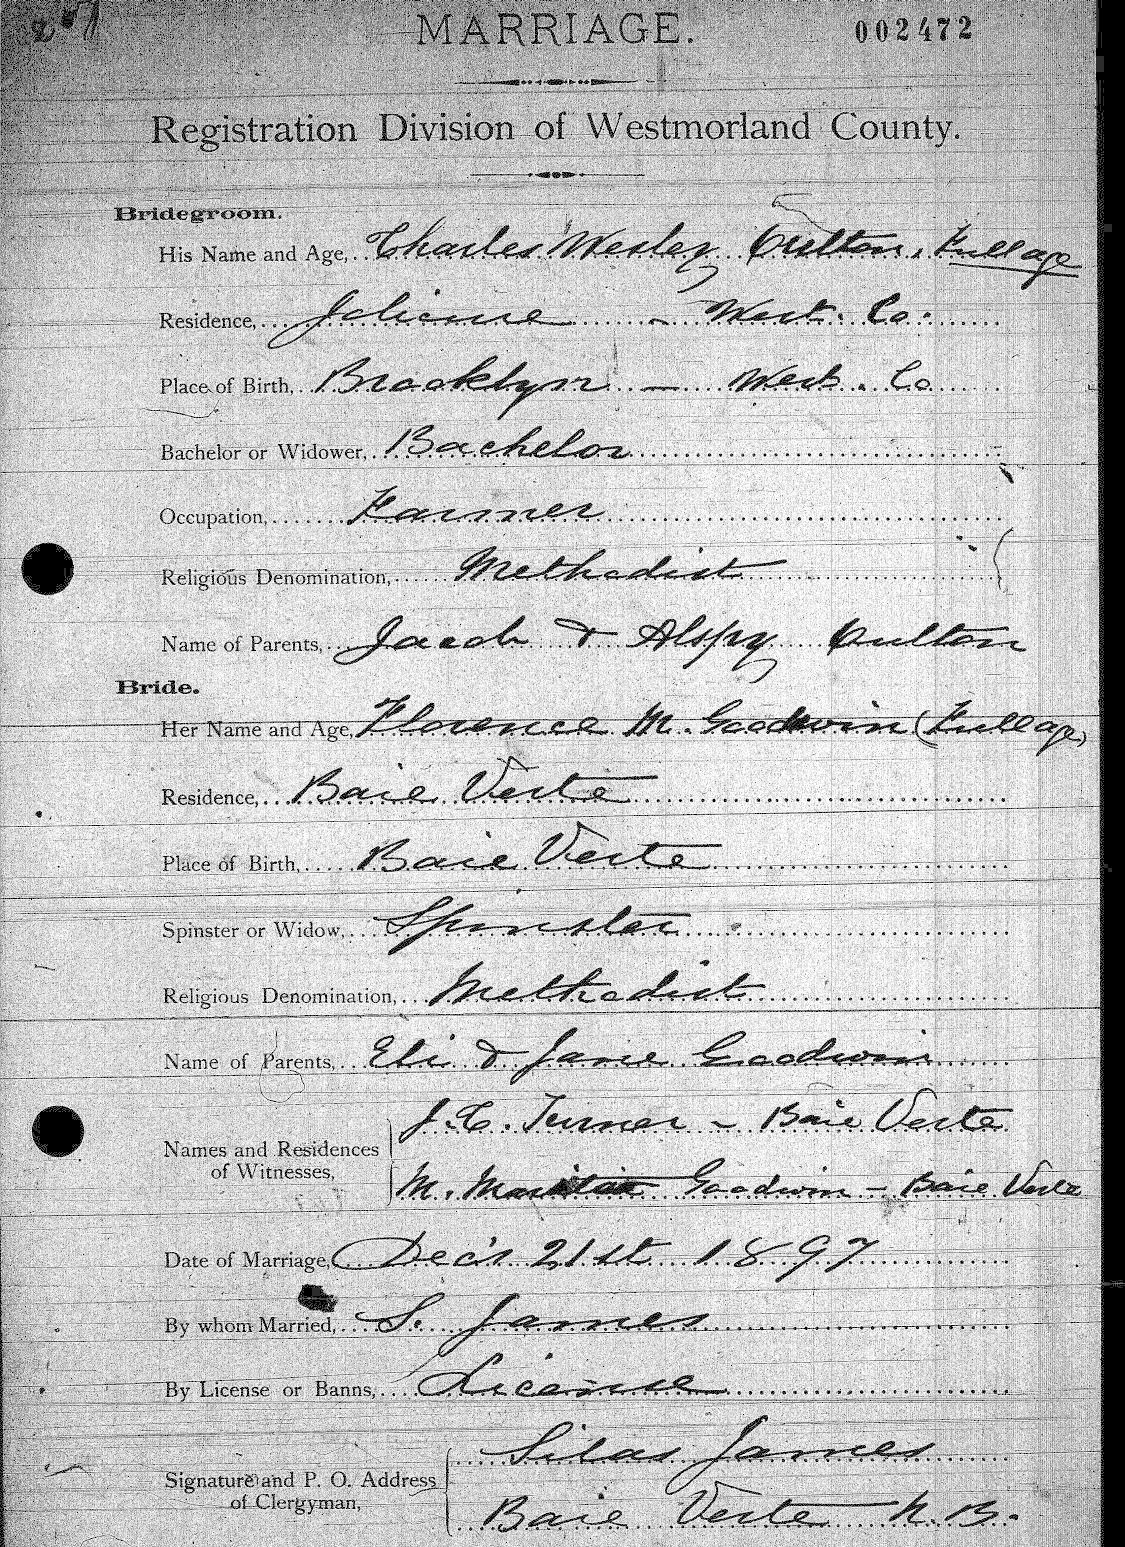 MARRIAGE.
002472
Registration Division of Westmorland County.
Bridegroom.
His Name and Age, Charles Wesley Oulton, Full age
Residence, Jolicure — West. Co.
Place of Birth, Brooklyn — West. Co
Bachelor or Widower, Bachelor
Occupation, Farmer
Religious Denomination, Methodist
Name of Parents, Jacob & Alspy Oulton
Bride.
Her Name and Age, Florence M. Goodwin (Full age)
Residence, Baie Verte
Place of Birth, Baie Verte
Spinster or Widow, Spinster
Religious Denomination, Methodist
Name of Parents, Eli & Jane Goodwin
Names and Residences of Witnesses,
J. C. Turner – Baie Verte
M. Goodwin – Baie Verte
Date of Marriage, Dec'r 21st 1897
By whom Married, S. James
By License or Banns, License
Signature and P. O. Address of Clergyman,
Silas James
Baie Verte N.B.